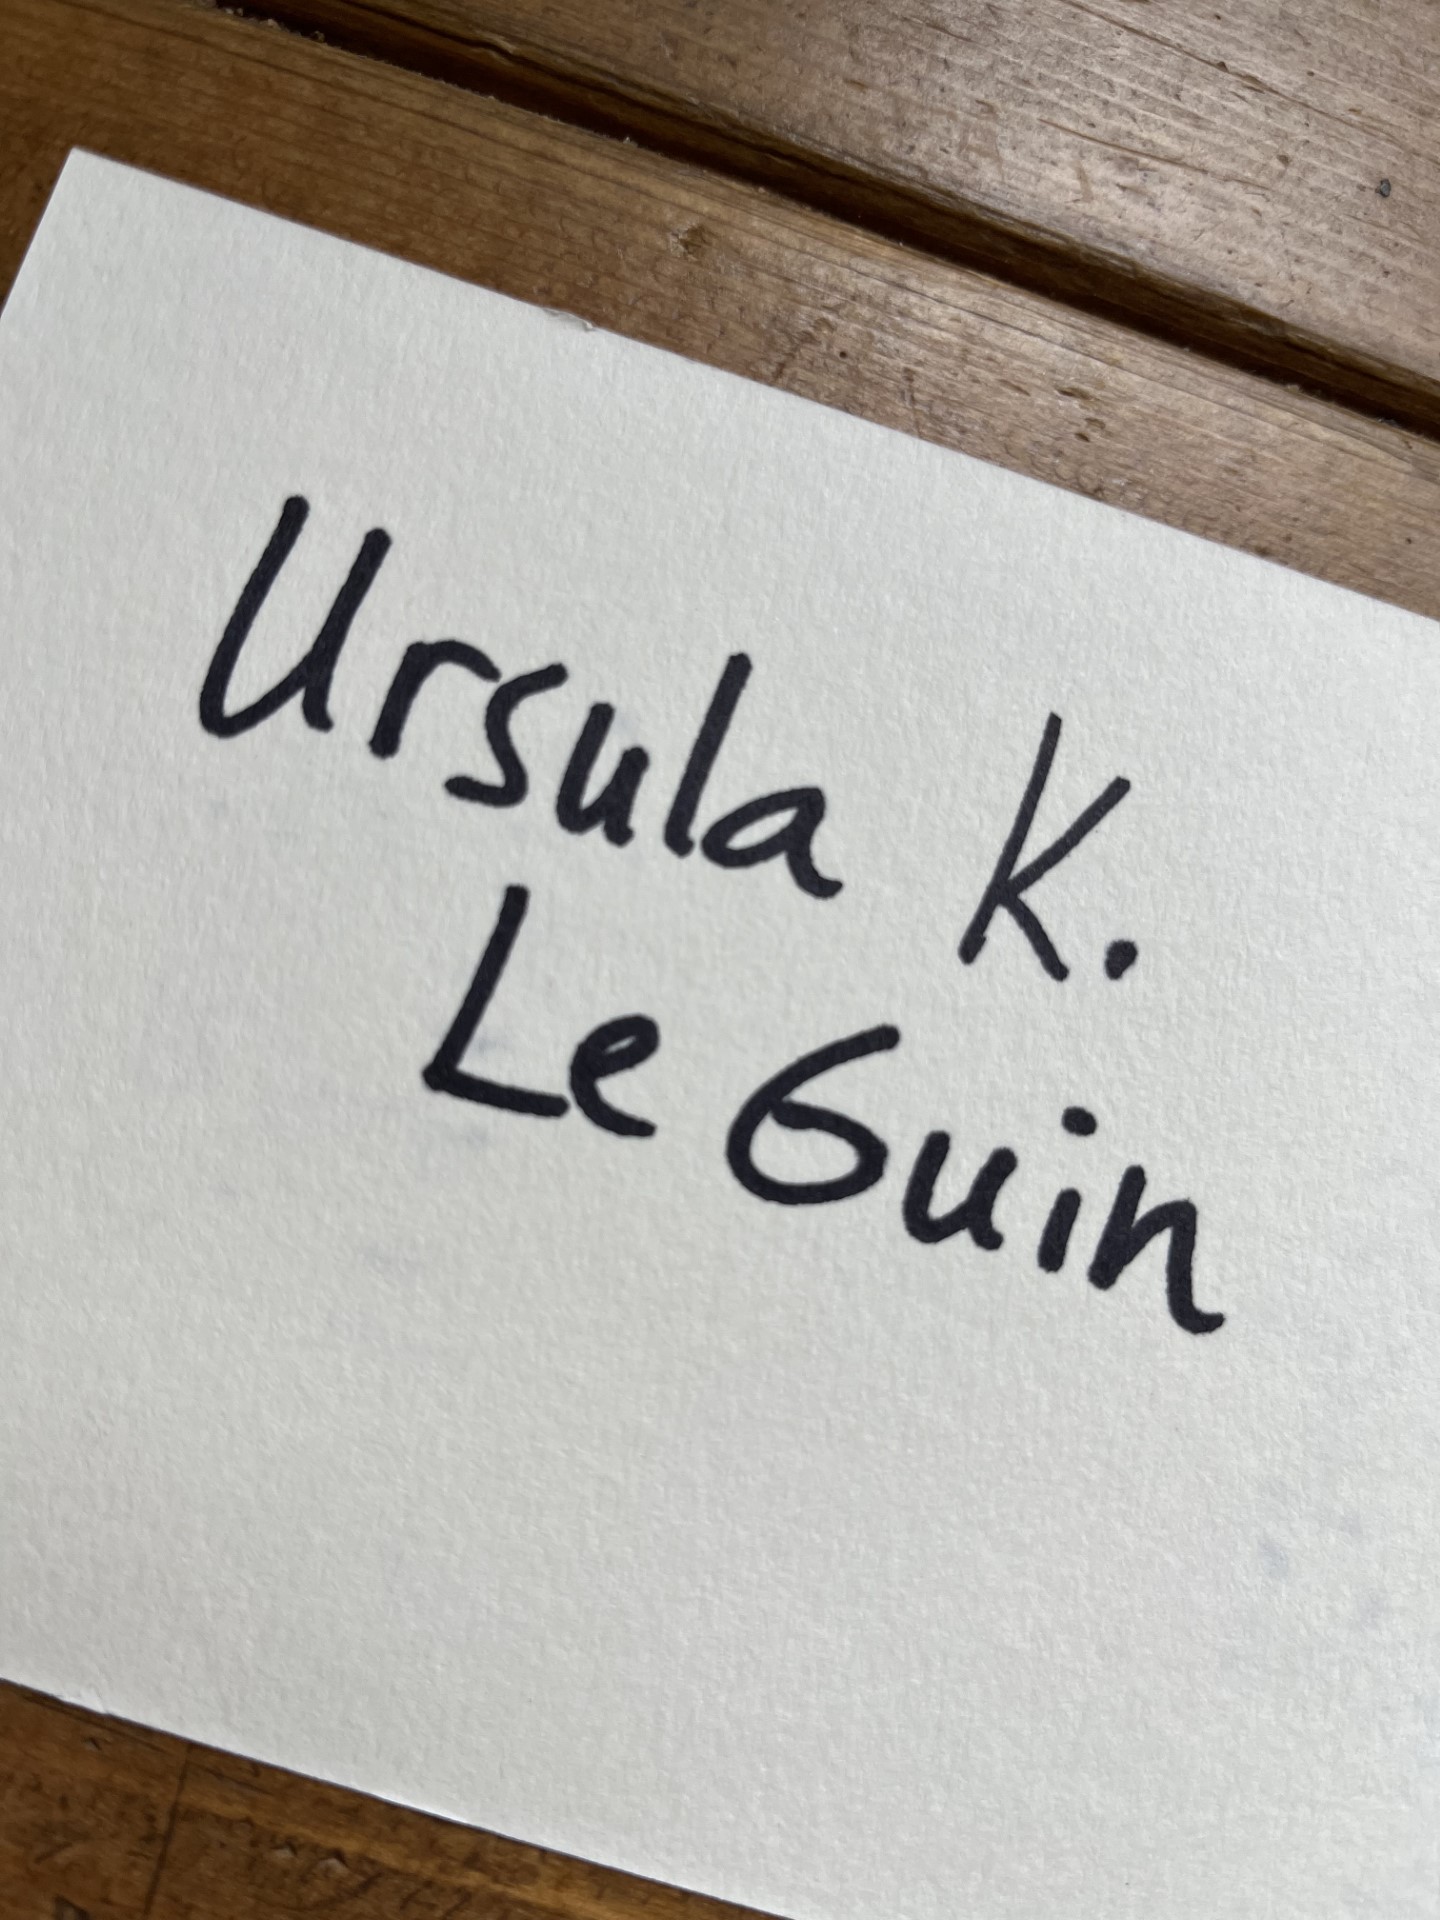 Ursula K.
Le Guin